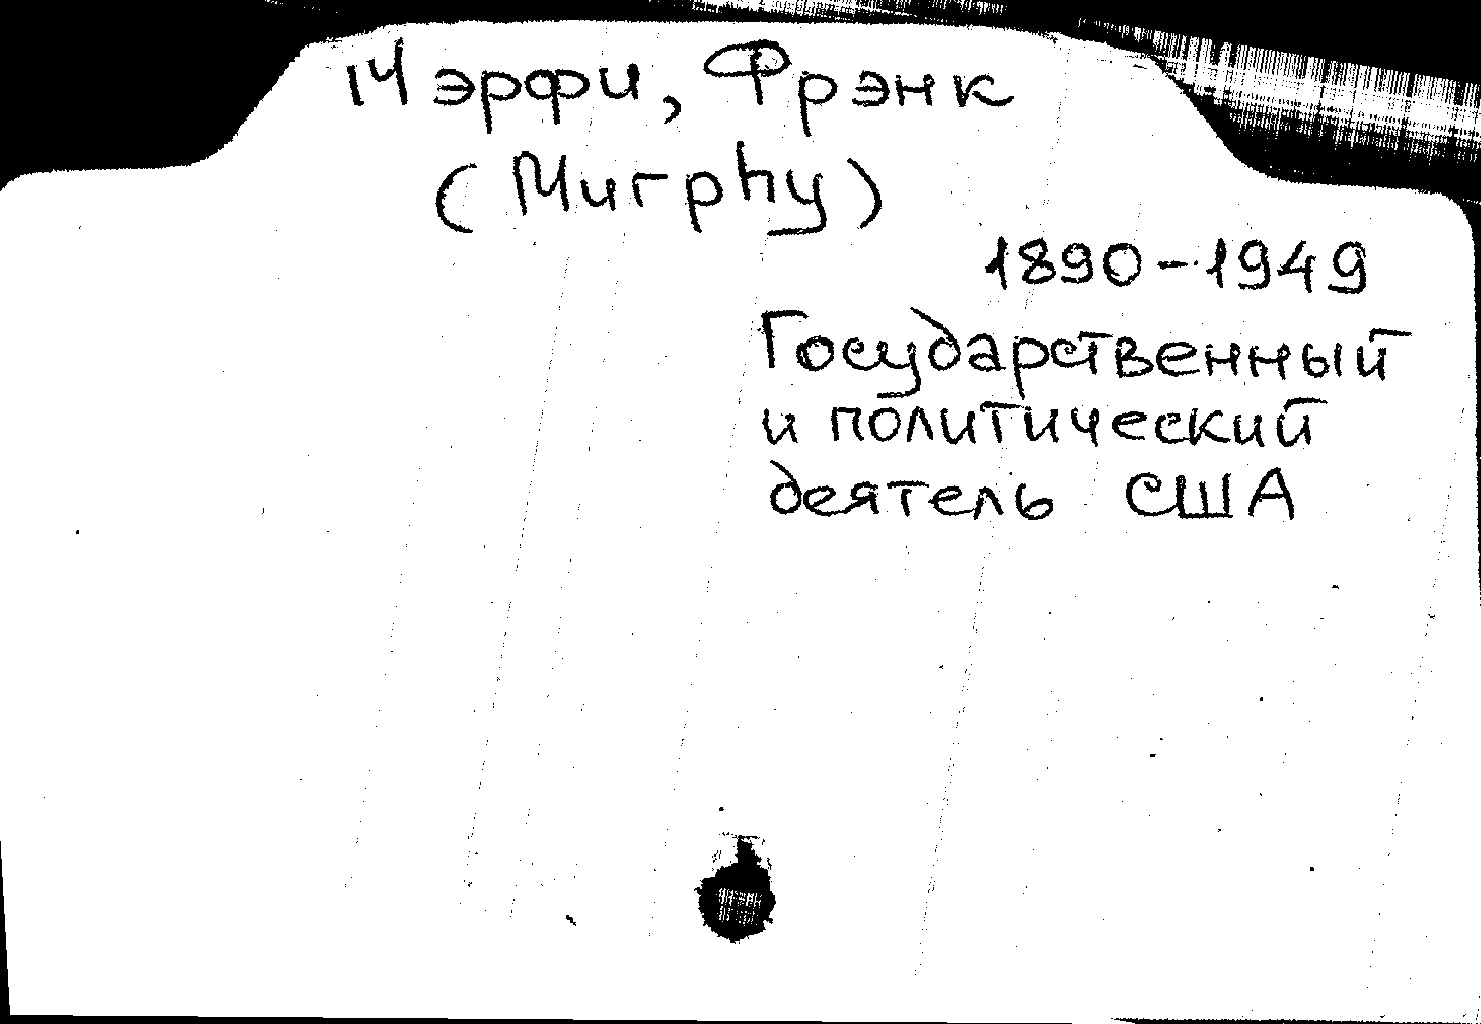 Мэрфи, Фрэнк
(Murphy)
1890-1949
Государственный
и политический
деятель США